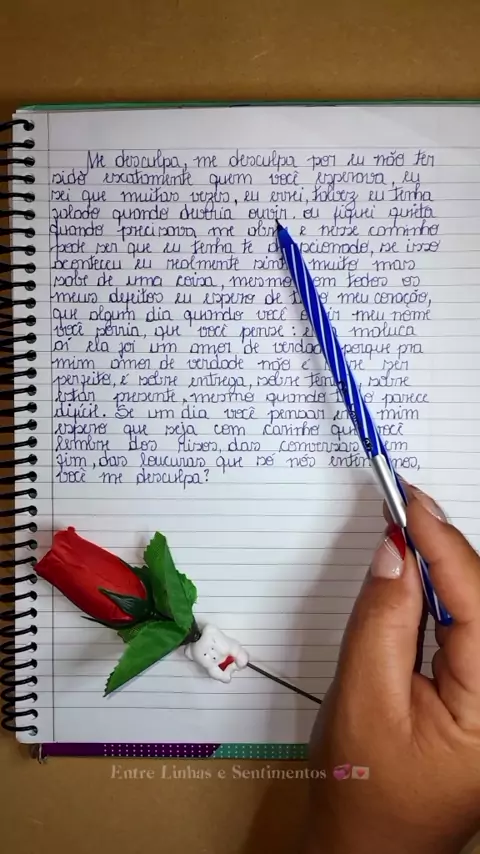 Me desculpa, me desculpa por eu não ter
sido exatamente quem você esperava, eu
sei que muitas vezes, eu errei, talvez eu tenha
falado quando deveria ouvir, ou fiquei quieta
quando precisava me abrir e nisse caminho
pode ser que eu tenha te decepcionado, se isso
aconteceu eu realmente sinto muito mas
sabe de uma coisa, mesmo com todos os
meus defeitos eu espero de todo meu coração,
que algum dia quando você ouvir meu nome
você sorria, que você pense: essa maluca
aí ela foi um amor de verdade, porque pra
mim amor de verdade não é sobre ser
perfeito, é sobre entrega, sobre tentar, sobre
estar presente, mesmo quando tudo parece
difícil. Se um dia você pensar em mim
espero que seja com carinho que você
lembre dos risos, das conversas sem
fim, das loucuras que só nós entendemos,
você me desculpa?
Entre Linhas e Sentimentos